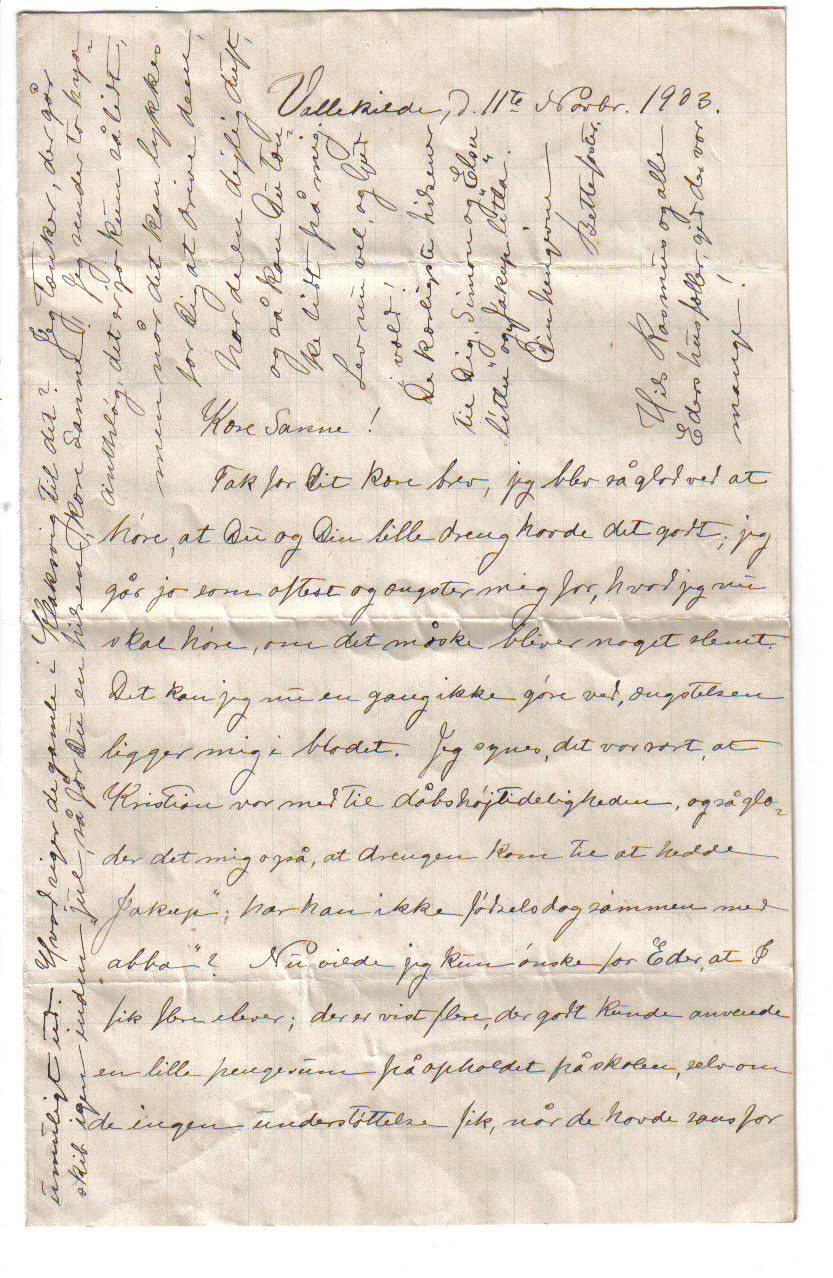 Vallekilde, d. 11te Novbr. 1903.
Kære Sanne!
Tak for Dit kære brev, jeg blev så glad ved at
höre, at Du og Din lille dreng havde det godt; jeg
går jo som oftest og ængster mig for, hvad jeg nu
skal höre, om det måske bliver noget slemt.
Det kan jeg nu en gang ikke göre ved, ængstelsen
ligger mig i blodet. Jeg synes, det var rart, at
Kristian var med til dåbshöjtideligheden, og så glæ-
der det mig også, at drengen kom til at hedde
"Jakup"; har han ikke födselsdag sammen med
"abba"? Nu vilde jeg kun önske for Eder, at I
fik flere elever; der er vist flere, der godt kunde anvende
en lille pengesum på opholdet på skolen, selv om
de ingen understöttelse fik, når de havde sans for
umuligt ud. Hvad siger de gamle i Klaksvig til det? Jeg tænker, der går
skib igen inden "jul", så får Du en hilsen, kære Sanne! Jeg sender to hya-
cinthlög, det er jo kun så lidt,
men når det kan lykkes
for Dig at drive dem,
har de en dejlig duft,
og så kan Du tæn-
ke lidt på mig.
Lev nu vel, og Gud
i vold!
De kærligste hilsener
til Dig, Simon og "Elsu
litlu" og "Jakup litla".
Din hengivne
Bettefaster.
Hils Rasmus og alle
Eders husfæller, gid der var
mange!